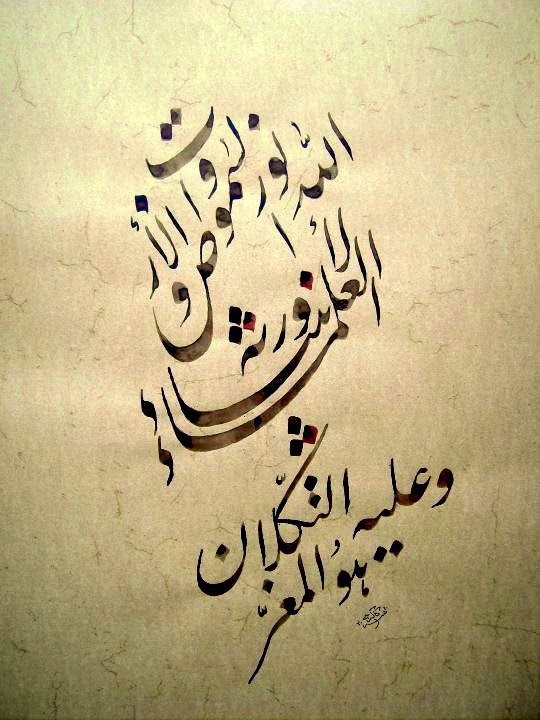 الله نور السموات والأرض
العلماء ورثة الأنبياء
وعليه التكلان
هو المعز